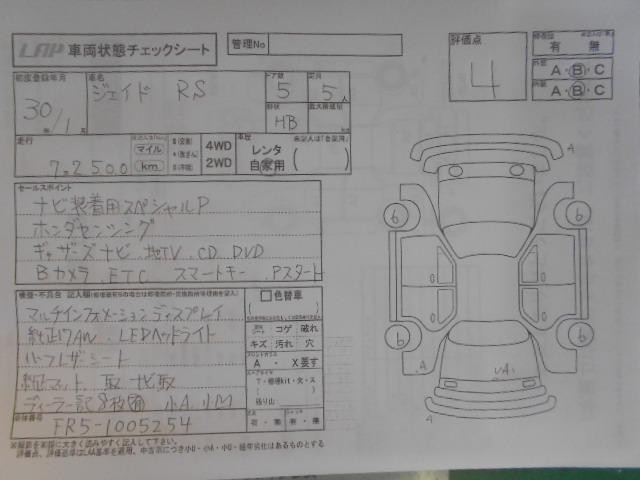 LAP 車両状態チェックシート
管理No
評価点
4
修復歴
有 無
外装
A・B・C
内装
A・B・C
初度登録年月
30年/1月
車名
ジェイド RS
ドア数
5
定員
5人
形状
HB
最大積載量
走行
72500
マイル
km
4WD
2WD
車歴
レンタ
自家用
セールスポイント
ナビ装着用スペシャルP
ホンダセンシング
ギャザーズナビ .地TV .CD .DVD
Bカメラ .ETC スマートキー .Pスタート
検査・不具合 記入欄
マルチインフォメーションディスプレイ
純正17AW . LEDヘッドライト
ハーフレザーシート
純正マット 取 ナビ取
小A 小U
色替車
コゲ 破れ
キズ 汚れ 穴
フロントガラス
A ・ X要す
残り山
有・無
有・無
車体番号
FR5-1005254
※撮影を前提に大きく読みやすく記入して下さい。
評価点、評価基準はLAA基準を適用、中古車につき小U・小A・小G・経年劣化はあるものとする
A
6
6
6
6
A
.A
UA
A